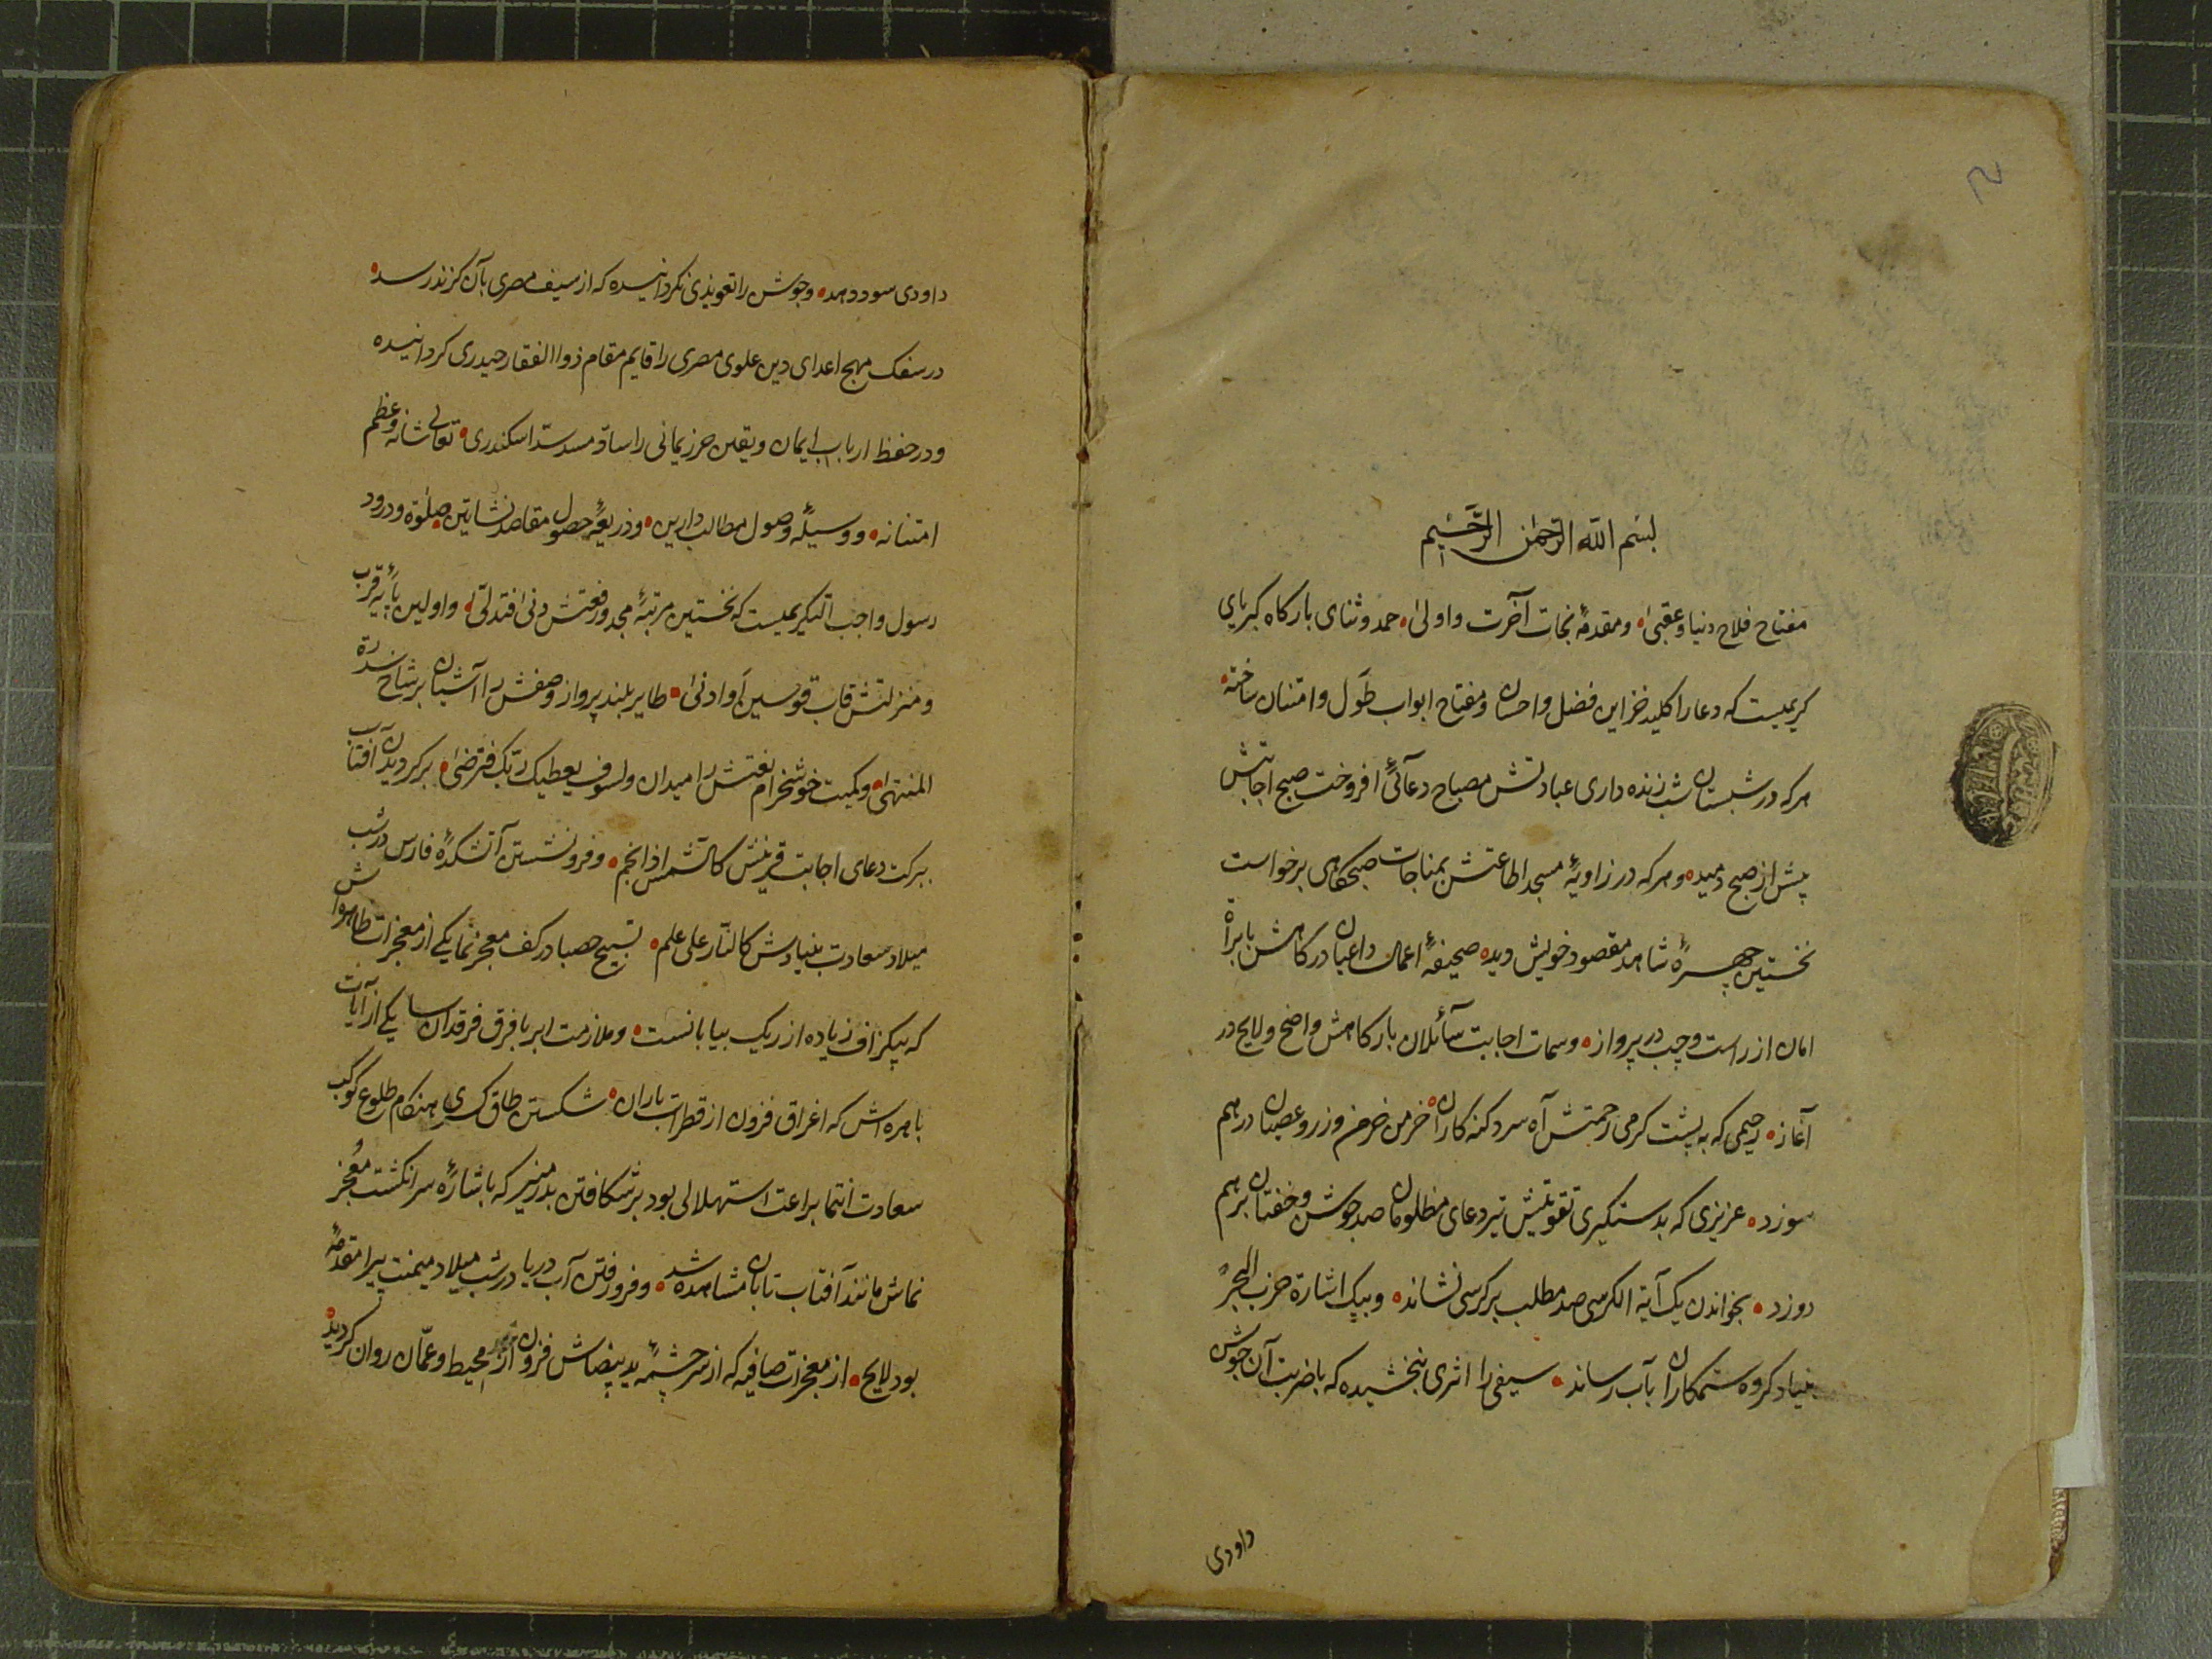 بسم الله الرحمن الرحیم
مفتاح فلاح دنیا و عقبی و مقدمهٔ نجات آخرت و اولی حمد و ثنای بارکاه کبریای
کریمیست که دعا را کلید خزاین فضل و احسان و مفتاح ابواب طَول و امتنان ساخته
هرکه در شبستان شب زنده داری عبادتش مصباح دعائی افروخت صبح اجابتش
پیش از صبح دمیده و هرکه در زاویهٔ مسجد اطاعتش بمناجات صبحکاهی برخواست
نخستین چهرهٔ شاهد مقصود خویش دیده صحیفهٔ اعمال داعیان درکاهش با براة
امان از راست و چپ در پرواز و سمات اجابت سآئلان بارکاهش واضح و لایح در
آغاز رحیمی که به پشت کرمی رحمتش آه سرد کنه کاران خرمن خرمن وزر و عصیان درهم
سوزد عزیزی که بدستکیری تقویتش تیر دعای مظلومان صد جوشن و خفتان برهم
دوزد بخواندن یک آیة الکرسی صد مطلب بر کرسی نشاند و بیک اشارة حزب البحر
بنیاد کروه ستمکاران بآب رساند سیفی را اثری بخشیده که با ضربت آن جوشن
داودی
داودی سود دهد و جوشن را تعویذی نکردانیده که از سیف مصری بآن کزند رسد
در سفک مهج اعدای دین علوی مصری را قایم مقام ذواالفقار حیدری کردانیده
و در حفظ ارباب ایمان و یقین حرز یمانی را ساد مسد سد اسکندری تعالی شانه و عظم
امتنانه و وسیلهٔ وصول مطالب دارین و ذریعهٔ حصول مقاصد نشاتین صلوة و درود
رسول واجب التکریمیست که نخستین مرتبهٔ مجد و رفعتش دنی فتدلی و اولین پایهٔ قرب
و منزلتش قاب قوسین اَو ادنی طایر بلند پرواز وصفش را آشیان بر شاخ سدرة
المنتهی و کمیت خوشخرام نعتش را میدان ولسوف یعطیک ربک فترضی برکردیدن آفتاب
ببرکت دعای اجابت قرینش کالشمس اذ انجم و فرونشستن آتشکدهٔ فارس در شب
میلاد سعادت بنیادش کالنار علی علم تسبیح حصبا در کف معجزنما یکی از معجزات ظاهره اش
که بیکزاف زیاده از ریک بیابانست و ملازمت ابر با فرق فرقدان سا یکی از آیات
باهره اش که اغراق فزون از قطرات باران شکستن طاق کسری هنکام طلوع کوکب
سعادت انتما براعت استهلالی بود بر شکافتن بدر منیر که باشارهٔ سرانکشت معجز
نماش مانند آفتاب تابان مشاهده شد و فرو رفتن آب دریا در شب میلاد میمنت پیرا مقدمهٔ
بود لایح از معجزات صافیه که از سرچشمهٔ ید بیضاش فزون از محیط و عمّان روان کردید